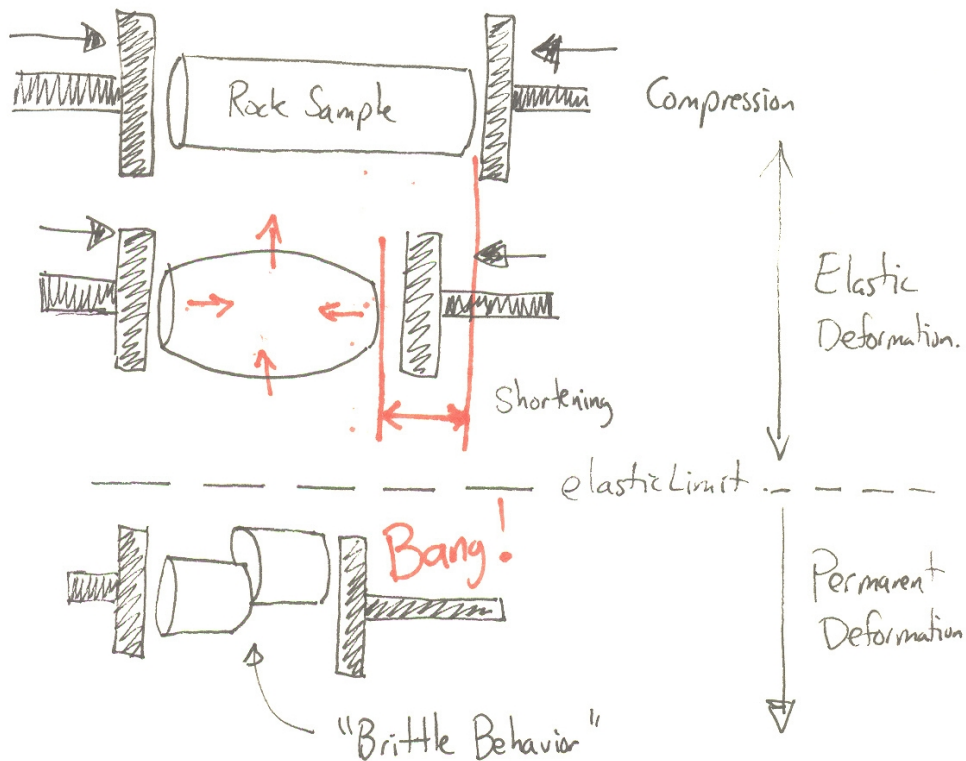 Rock Sample
Compression
Elastic
Deformation.
Shortening
elastic Limit
Bang!
Permanent
Deformation
"Brittle Behavior"